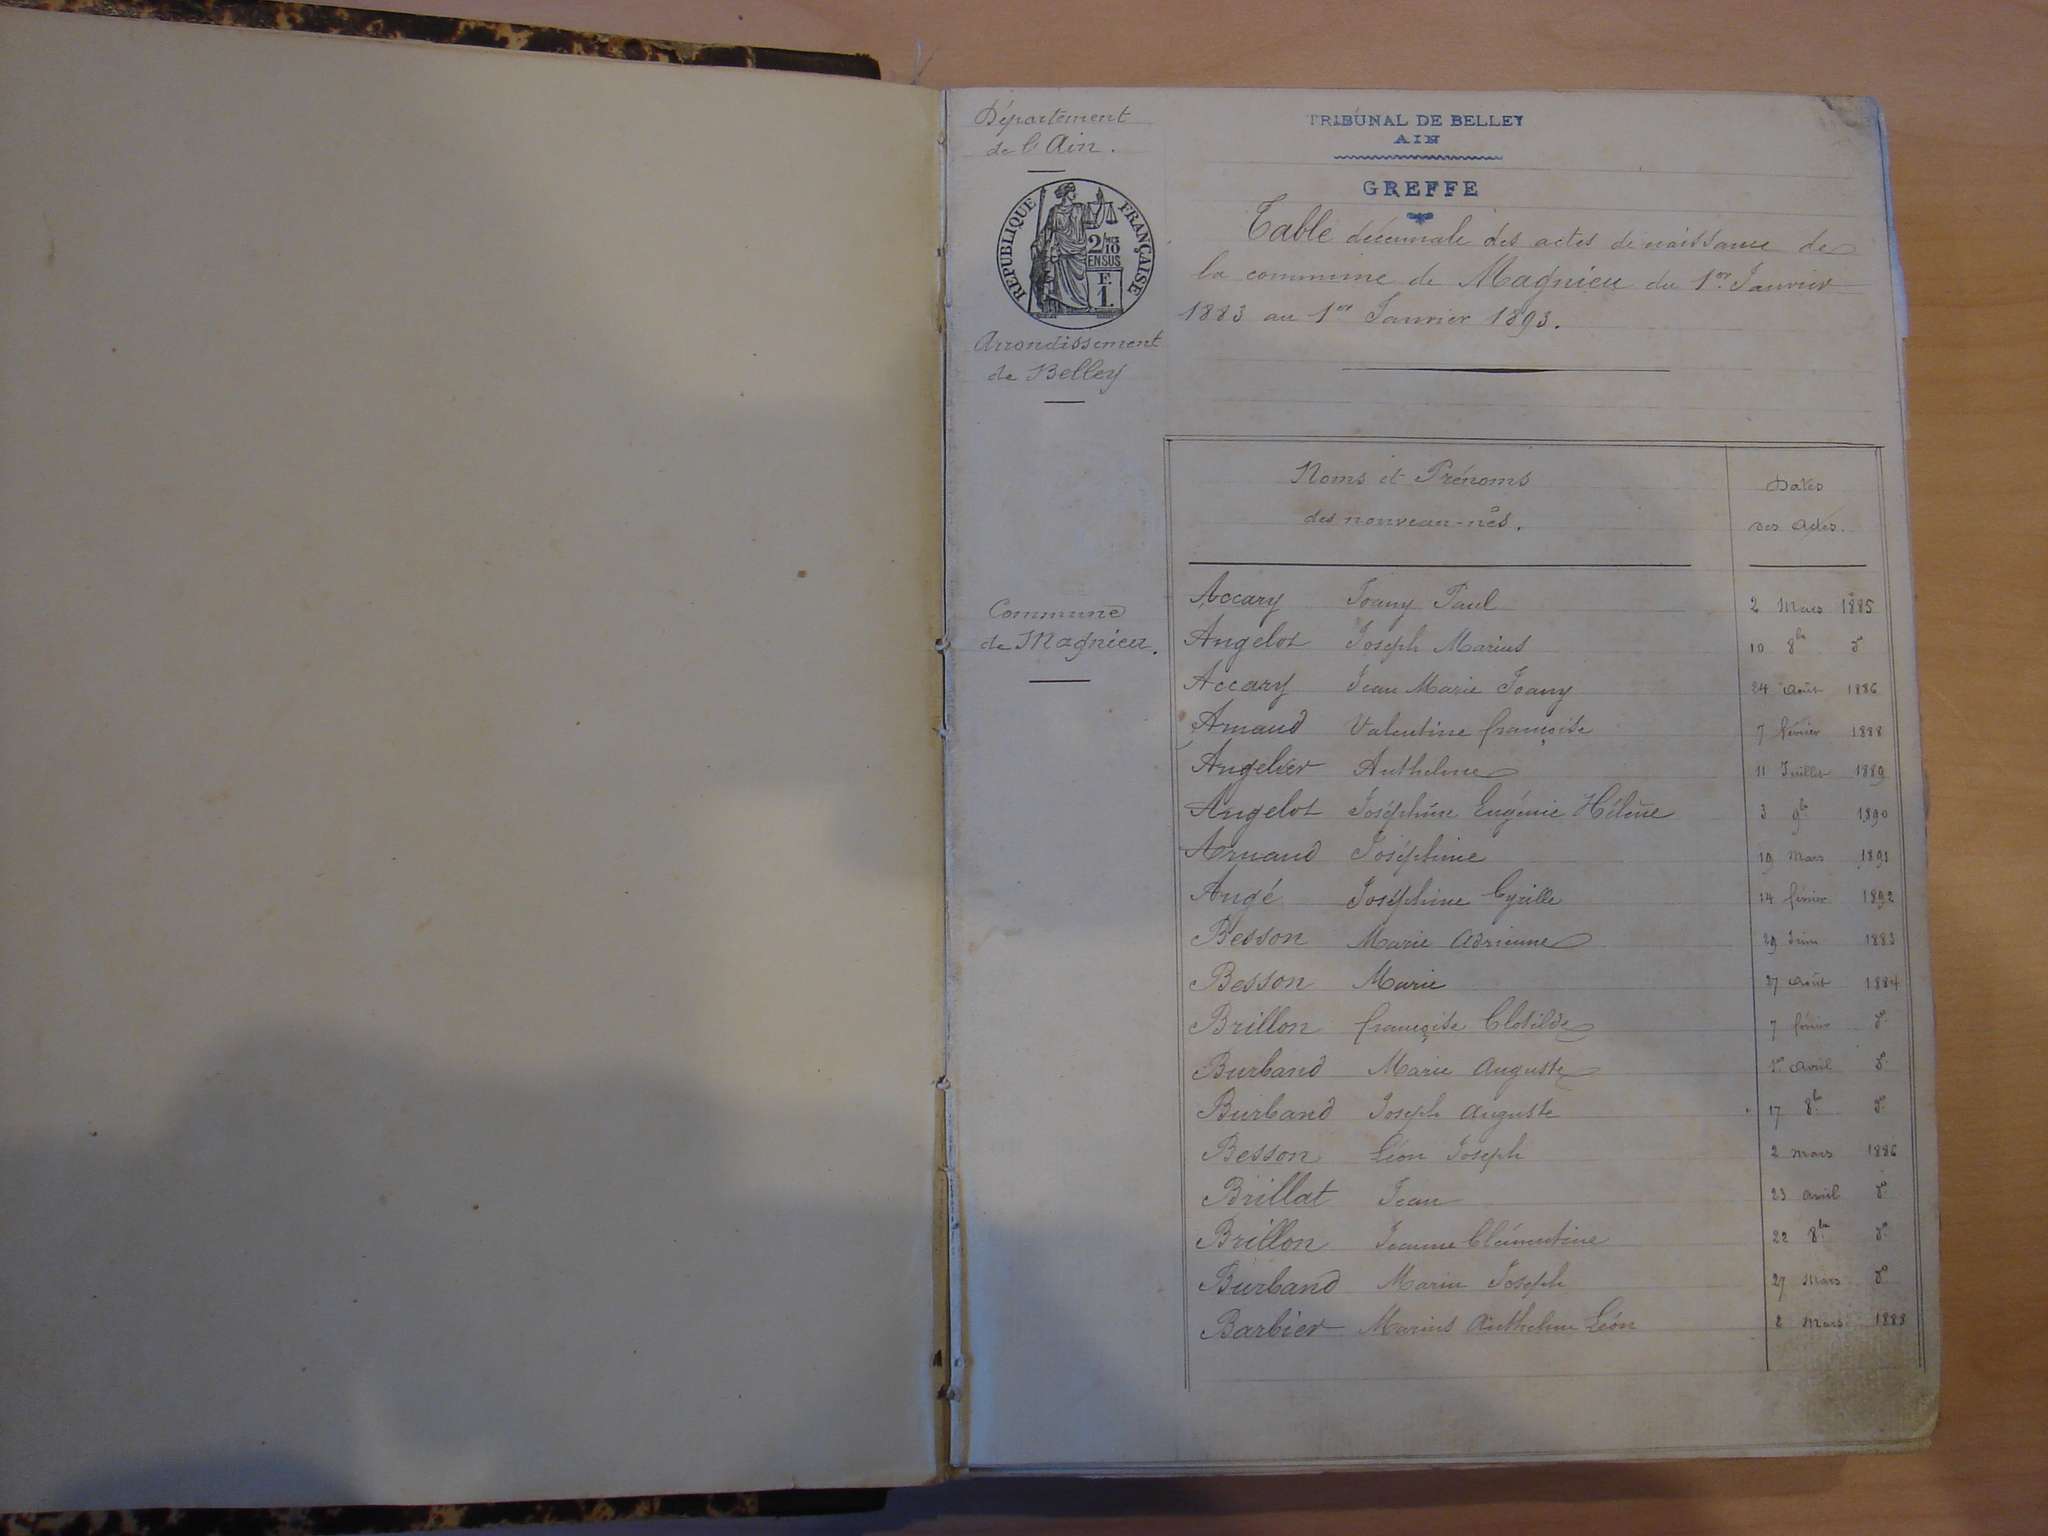 Département
de l'Ain.
REPUBLIQUE FRANÇAISE
2/10
EN SUS
F.
1.
Arrondissement
de Belley
Commune
de Magnieu.
TRIBUNAL DE BELLEY
AIN
GREFFE
Table décennale des actes de naissance de
la commune de Magnieu du 1er Janvier
1883 au 1er Janvier 1893.
Noms et Prénoms Dates
des nouveau-nés. des Actes.
Accary Joany Paul 2 Mars 1885
Angelot Joseph Marius 10 8bre do
Accary Jean Marie Joany 24 Août 1886
Arnaud Valentine françoise 7 février 1888
Angelier Anthelme 11 Juillet 1889
Angelot Joséphine Eugénie Hélène 3 9bre 1890
Arnaud Joséphine 19 Mars 1891
Angé Joséphine Cyrille 14 février 1892
Besson Marie Adrienne 29 Juin 1883
Besson Marie 27 Août 1884
Brillon françoise Clotilde 7 février do
Burband Marie Auguste 1er Avril do
Burband Joseph Auguste 17 8bre do
Besson Léon Joseph 2 Mars 1886
Brillat Jean 23 Avril do
Brillon Jeanne Clémentine 22 8bre do
Burband Marie Joseph 27 Mars do
Barbier Marius Anthelme Léon 2 Mars 1888